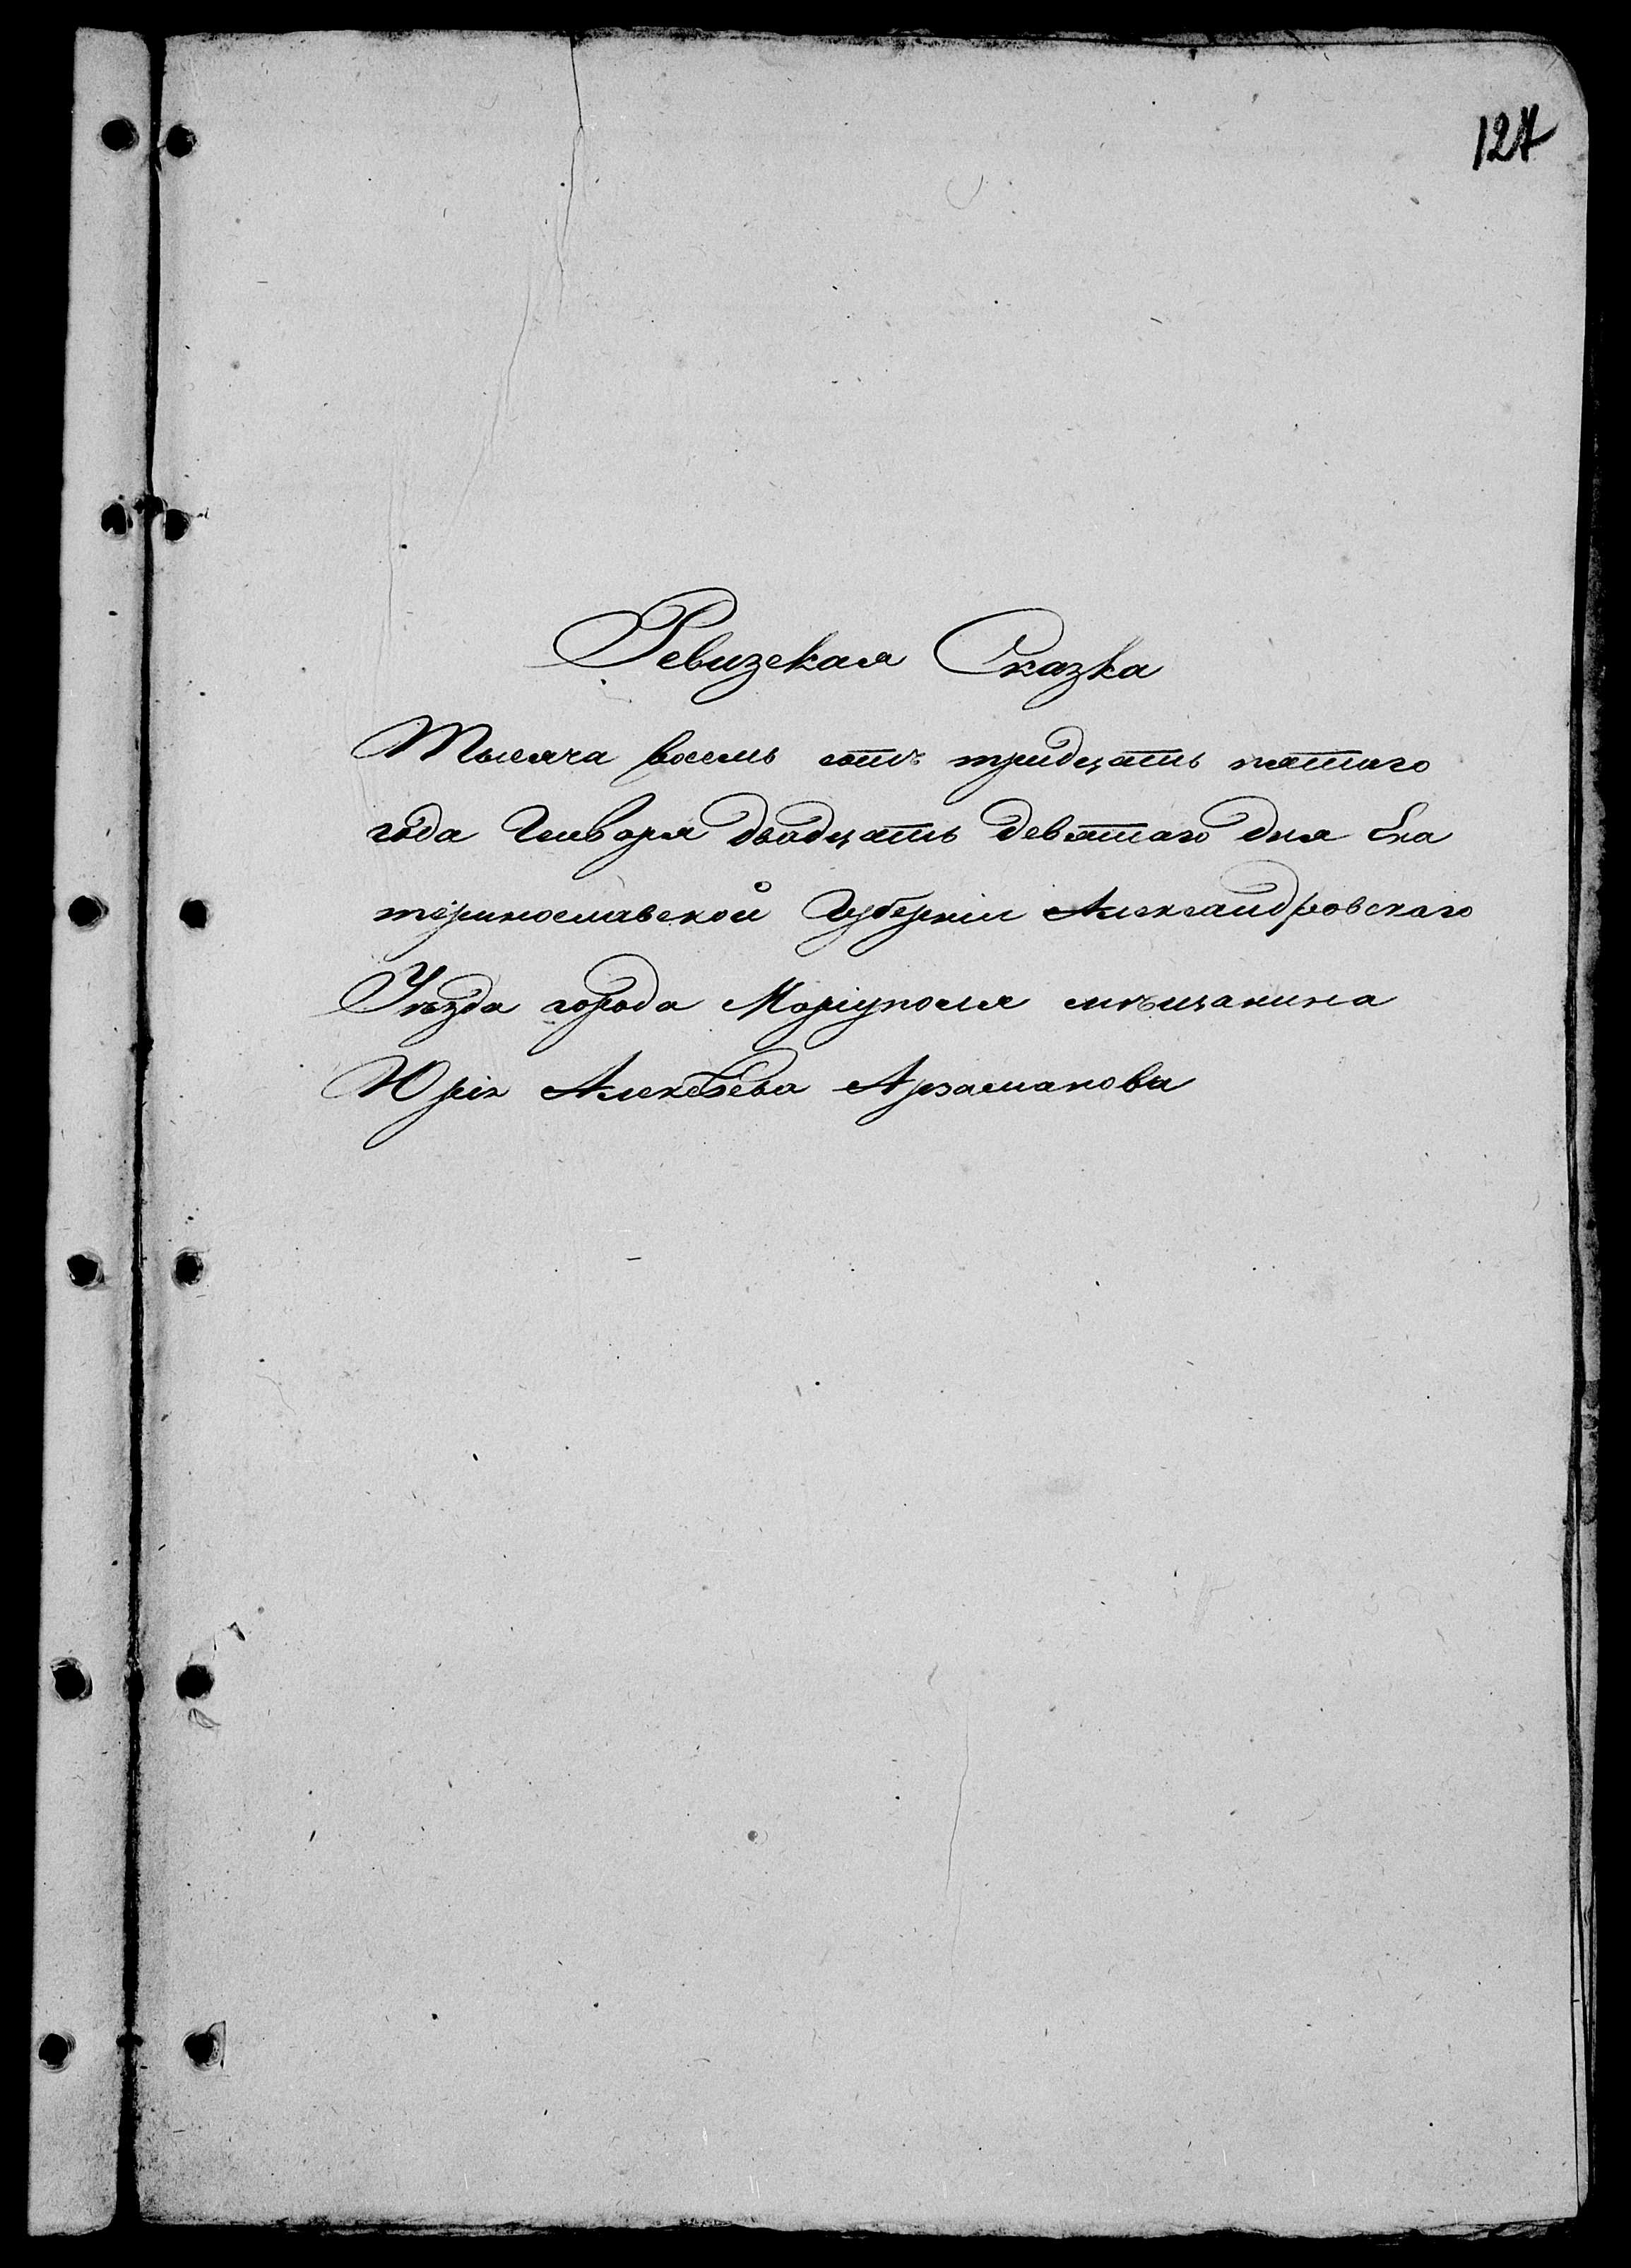 127
Ревизская Сказка
Тысяча восемь сотъ тридцать пятаго
года Генваря двадцать девятаго дня Ека
теринославской Губерніи Александровскаго
Уѣзда города Маріуполя мѣщанина
Юрія Алексѣева Арзаманова